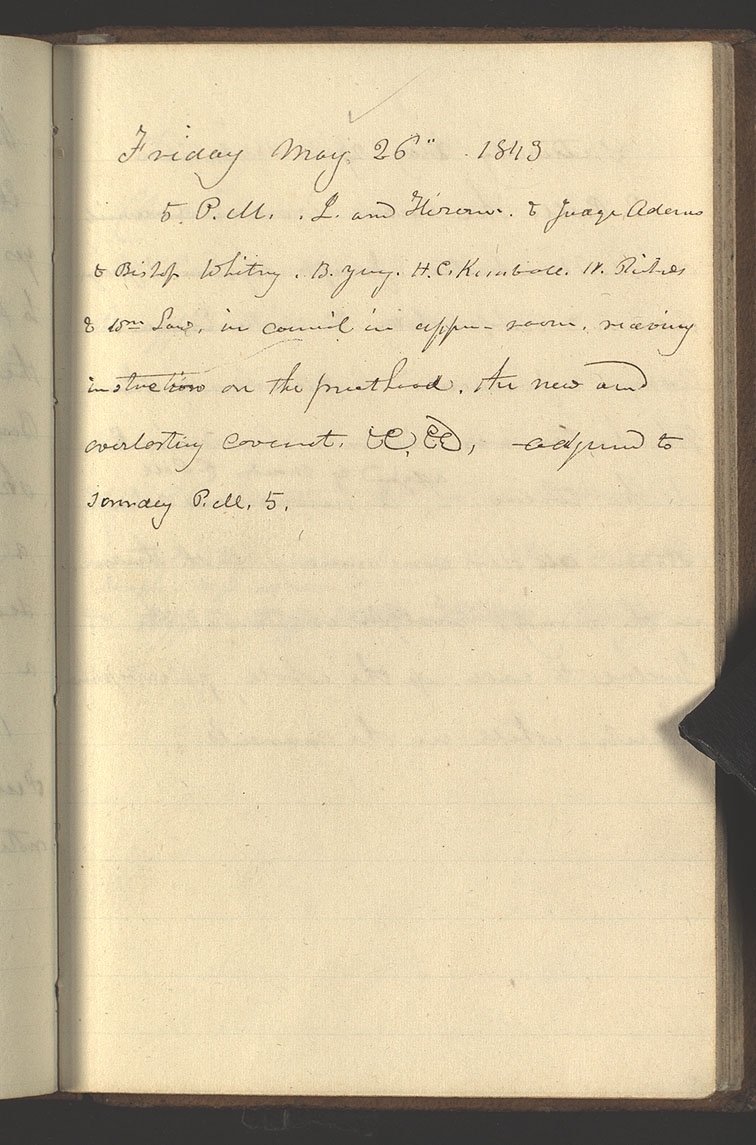 Friday May 26" 1843
5. P.M. . J. and Hiram. & Judge Adams
& Bishop Whitny. B. Yug. H. C. Kimball. W. Richds
& Wm Law. in council in upper room. receiving
instruction on the priesthood. the new and
everlasting covenant. &C, &C, adjourned to
sunday P.M. 5.